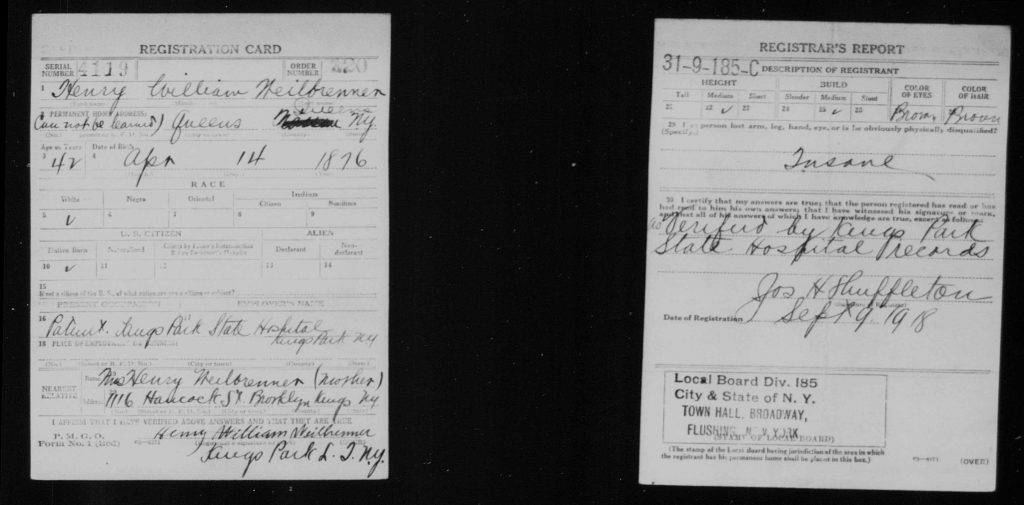 REGISTRATION CARD
SERIAL NUMBER 4119 ORDER NUMBER 320
1 Henry William Weilbrenner
2 PERMANENT HOME ADDRESS:
Queens
(can not be learned) Queens NY
Age in Years Date of Birth
3 42 4 Apr 14 1876
RACE
White Negro Oriental Indian
Citizen Noncitizen
5 ✓ 6 7 8 9
U. S. CITIZEN ALIEN
Native Born Naturalized Citizen by Father's Naturalization Before Registrant's Majority Declarant Non-declarant
10 ✓ 11 12 13 14
15
If not a citizen of the U. S., of what nation are you a citizen or subject?
PRESENT OCCUPATION EMPLOYER'S NAME
16 Patient. 17 Kings Park State Hospital
18 PLACE OF EMPLOYMENT OR BUSINESS: Kings Park NY
(No.) (Street or R. F. D. No.) (City or town) (County) (State)
NEAREST RELATIVE
Name Mrs Henry Weilbrenner (mother)
Address 1116 Hancock St. Brooklyn Kings NY
I AFFIRM THAT I HAVE VERIFIED ABOVE ANSWERS AND THAT THEY ARE TRUE
P. M. G. O.
Form No. 1 (Red)
Henry William Weilbrenner
Kings Park L. I. N.Y.
REGISTRAR'S REPORT
31-9-185-C
DESCRIPTION OF REGISTRANT
HEIGHT BUILD COLOR OF EYES COLOR OF HAIR
Tall Medium Short Slender Medium Stout
21 22 ✓ 23 24 25 ✓ 26 Brown Brown
29 Has person lost arm, leg, hand, eye, or is he obviously physically disqualified?
(Specify.)
Insane
30 I certify that my answers are true; that the person registered has read or has had read to him his own answers; that I have witnessed his signature or mark, and that all of his answers of which I have knowledge are true, except as follows:
as Verified by Kings Park
State Hospital Records
Jos H Shuffleton
Date of Registration Sept 9. 1918
Local Board Div. 185
City & State of N. Y.
TOWN HALL, BROADWAY,
FLUSHING, N. Y. YORK
(STAMP OF LOCAL BOARD)
(The stamp of the Local Board having jurisdiction of the area in which
the registrant has his permanent home shall be placed in this box.)
(OVER)